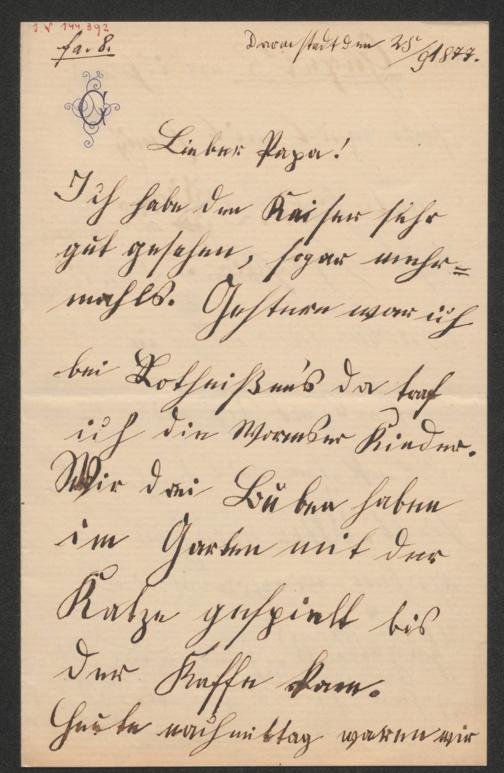 I. N 144.392
fa. 8.
Darmstadt den 25/9 1877.
G
Lieber Papa!
Ich habe den Kaiser sehr
gut gesehen, sogar mehr=
mahls. Gestern war ich
bei da traf
ich die Wormser Kinder.
Wir drei Buben haben
im Garten mit der
Katze gespielt bis
der Kaffe kam.
Heute nachmittag waren wir